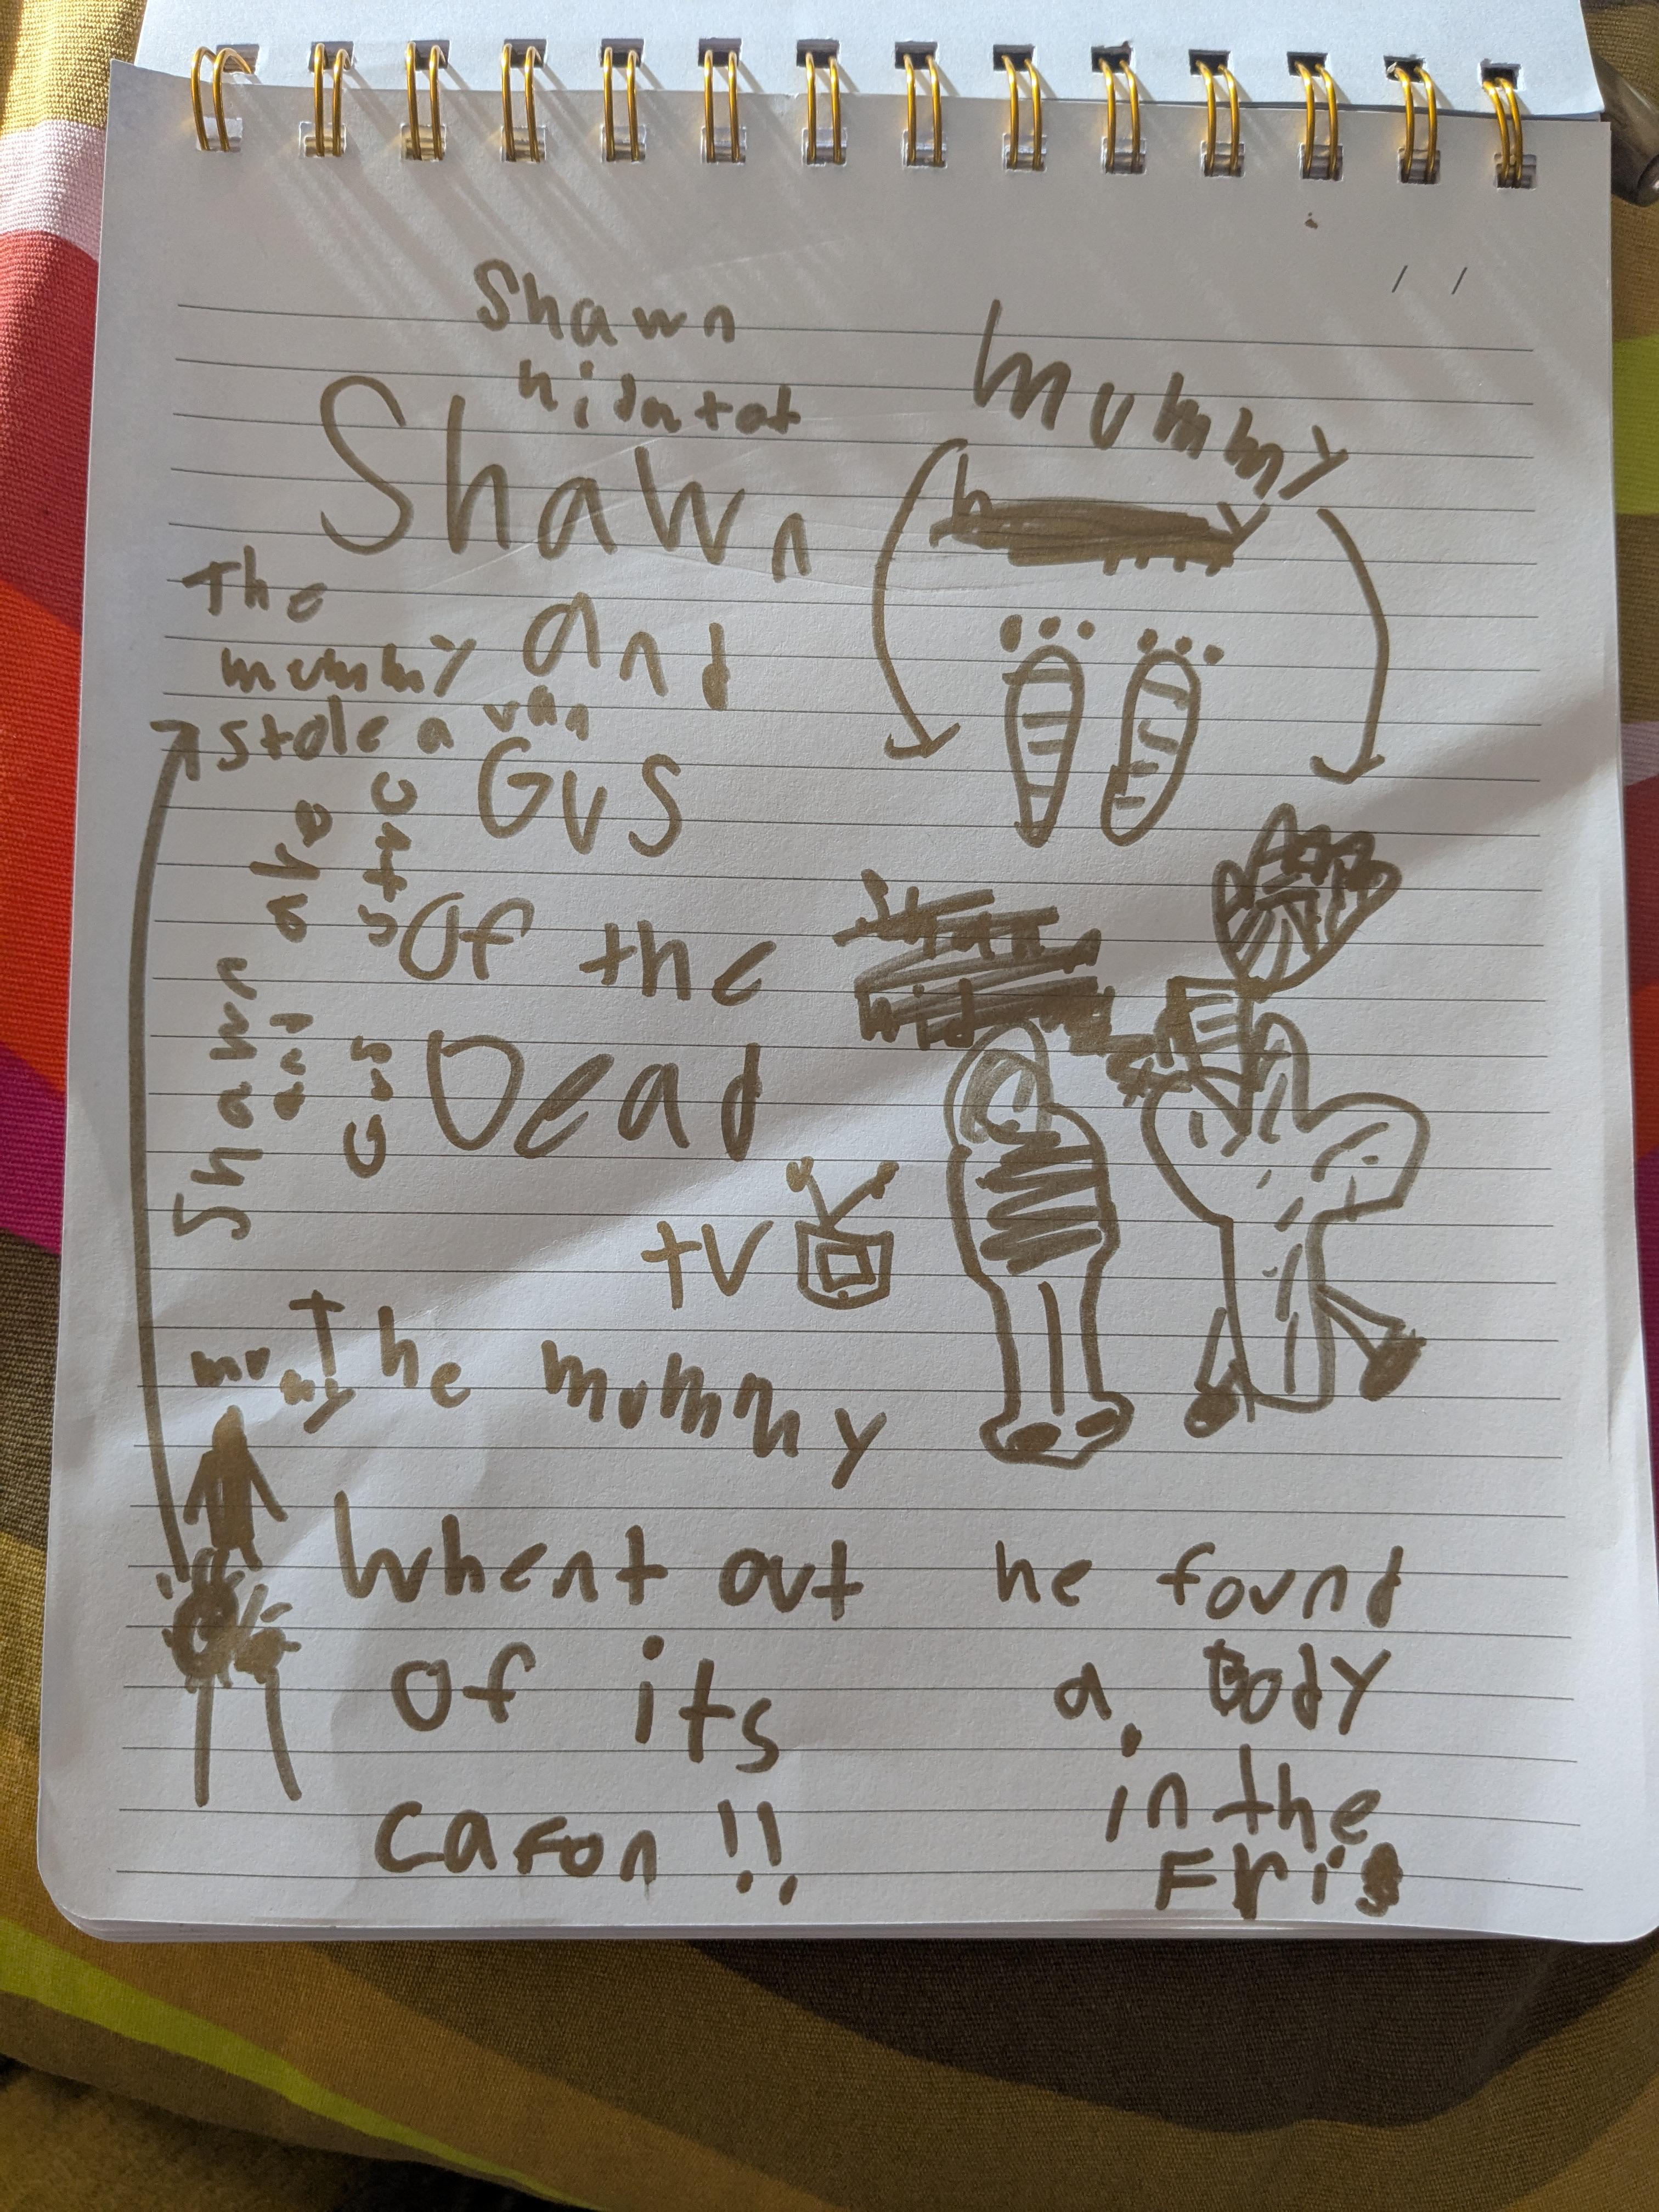 Shawn
Shawn
and
Gus
Of the
Dead
mummy
The
mummy
stole a van
Shawn
and
Gus
TV
mummy
The mummy
Whent out
of its
Cafon !!
he found
a Body
in the
Fris